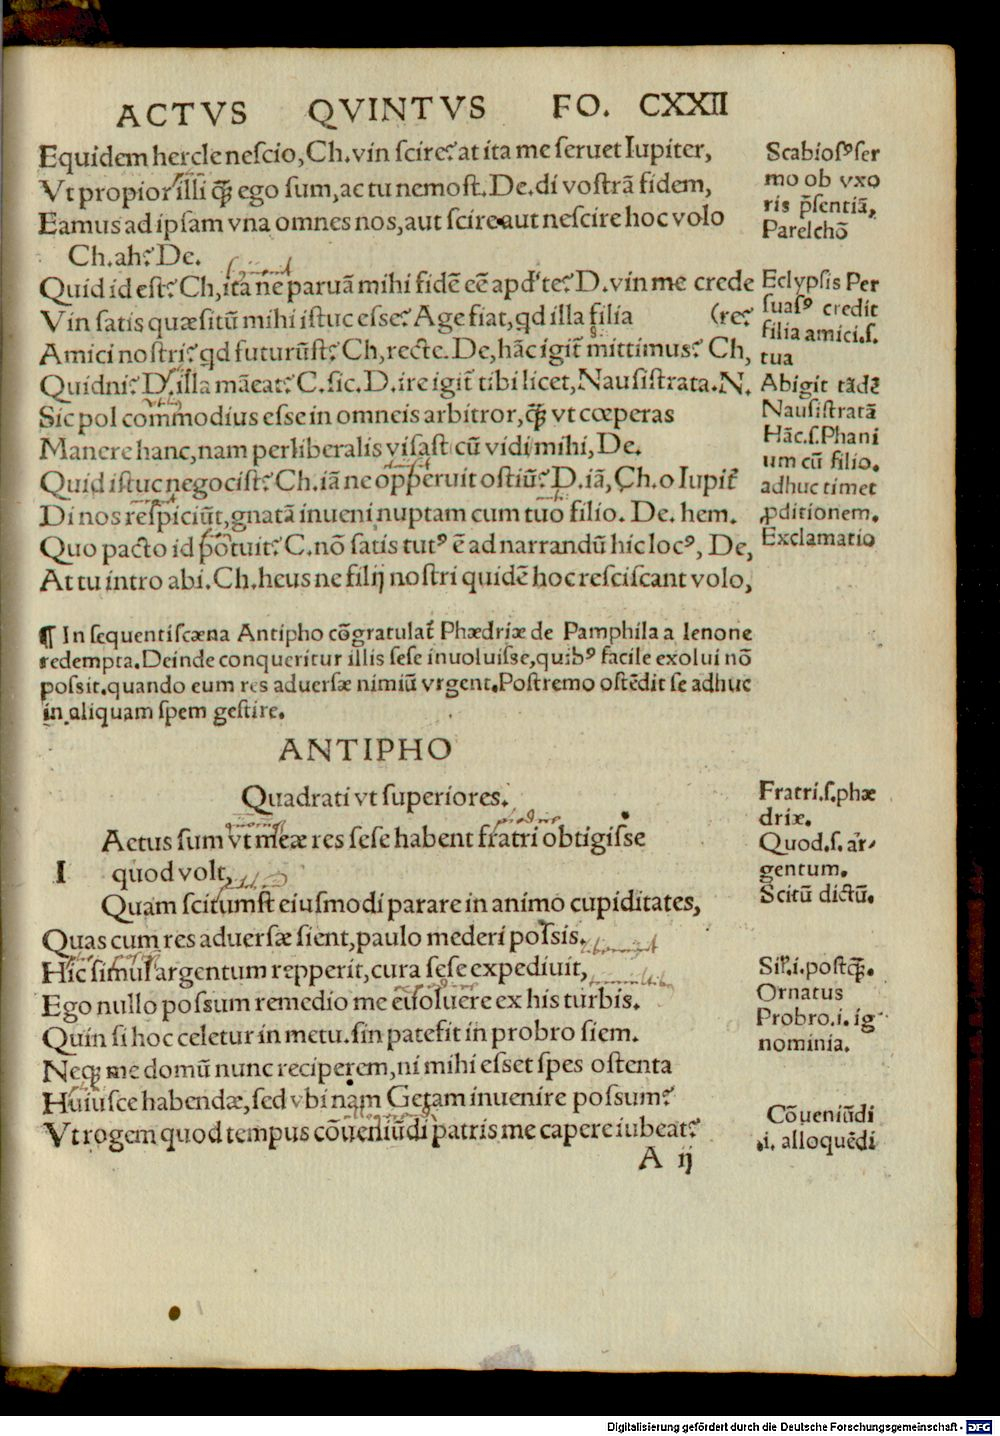 ACTVS QVINTVS FO. CXXII
Equidem hercle nescio, Ch. vin scire? at ita me seruet Iupiter,
Vt propior illi q̄ꝫ ego sum, ac tu nemost. De. di vostrā fidem,
Eamus ad ipsam vna omnes nos, aut scire aut nescire hoc volo
Ch. ah? De.
Quid id est? Ch, ita ne paruā mihi fidē eē apd' te? D. vin me crede
Vin satis quæsitū mihi istuc esse? Age fiat, qd illa filia (re?
Amici nostri? qd futurūst? Ch, recte. De, hāc igit̃ mittimus? Ch,
Quidni? D. illa māeat? C. sic. D. ire igit̃ tibi licet, Nausistrata. N.
Sic pol commodius esse in omneis arbitror, q̄ꝫ vt cœperas
Manere hanc, nam perliberalis visast cū vidi mihi, De.
Quid istuc negocist? Ch. iā ne opperuit ostiū? D. iā, Ch. o Iupit̃
Di nos respiciūt, gnatā inueni nuptam cum tuo filio. De. hem.
Quo pacto id potuit? C. nō satis tutꝰ ē ad narrandū hic locꝰ, De,
At tu intro abi. Ch. heus ne filij nostri quidē hoc resciscant volo,
¶ In sequenti scæna Antipho cōgratulat̃ Phædriæ de Pamphila a lenone
redempta. Deinde conqueritur illis sese inuoluisse, quibꝰ facile exolui nō
possit. quando eum res aduersæ nimiū vrgent. Postremo ostēdit se adhuc
in aliquam spem gestire.
ANTIPHO
Quadrati vt superiores.
Actus sum vt meæ res sese habent fratri obtigisse
I quod volt,
Quam scitumst eiusmodi parare in animo cupiditates,
Quas cum res aduersæ sient, paulo mederi possis.
Hic simul argentum repperit, cura sese expediuit,
Ego nullo possum remedio me euoluere ex his turbis.
Quin si hoc celetur in metu. sin patefit in probro siem.
Neqꝫ me domū nunc reciperem, ni mihi esset spes ostenta
Huiusce habendæ, sed vbi nam Getam inuenire possum?
Vt rogem quod tempus cōueniūdi patris me capere iubeat?
A ij
Scabiosꝰ ser
mo ob vxo
ris p̄sentiā,
Parelchō
Eclypsis Per
suasꝰ credit
filia amici. s.
tua
Abigit tādē
Nausistratā
Hāc. s. Phani
um cū filio.
adhuc timet
ꝓditionem.
Exclamatio
Fratri. s. phæ
driæ.
Quod. s. ar-
gentum.
Scitū dictū.
Sil'. i. postq̄ꝫ.
Ornatus
Probro. i. ig
nominia.
Cōueniūdi
.i. alloquēdi
Digitalisierung gefördert durch die Deutsche Forschungsgemeinschaft - DFG